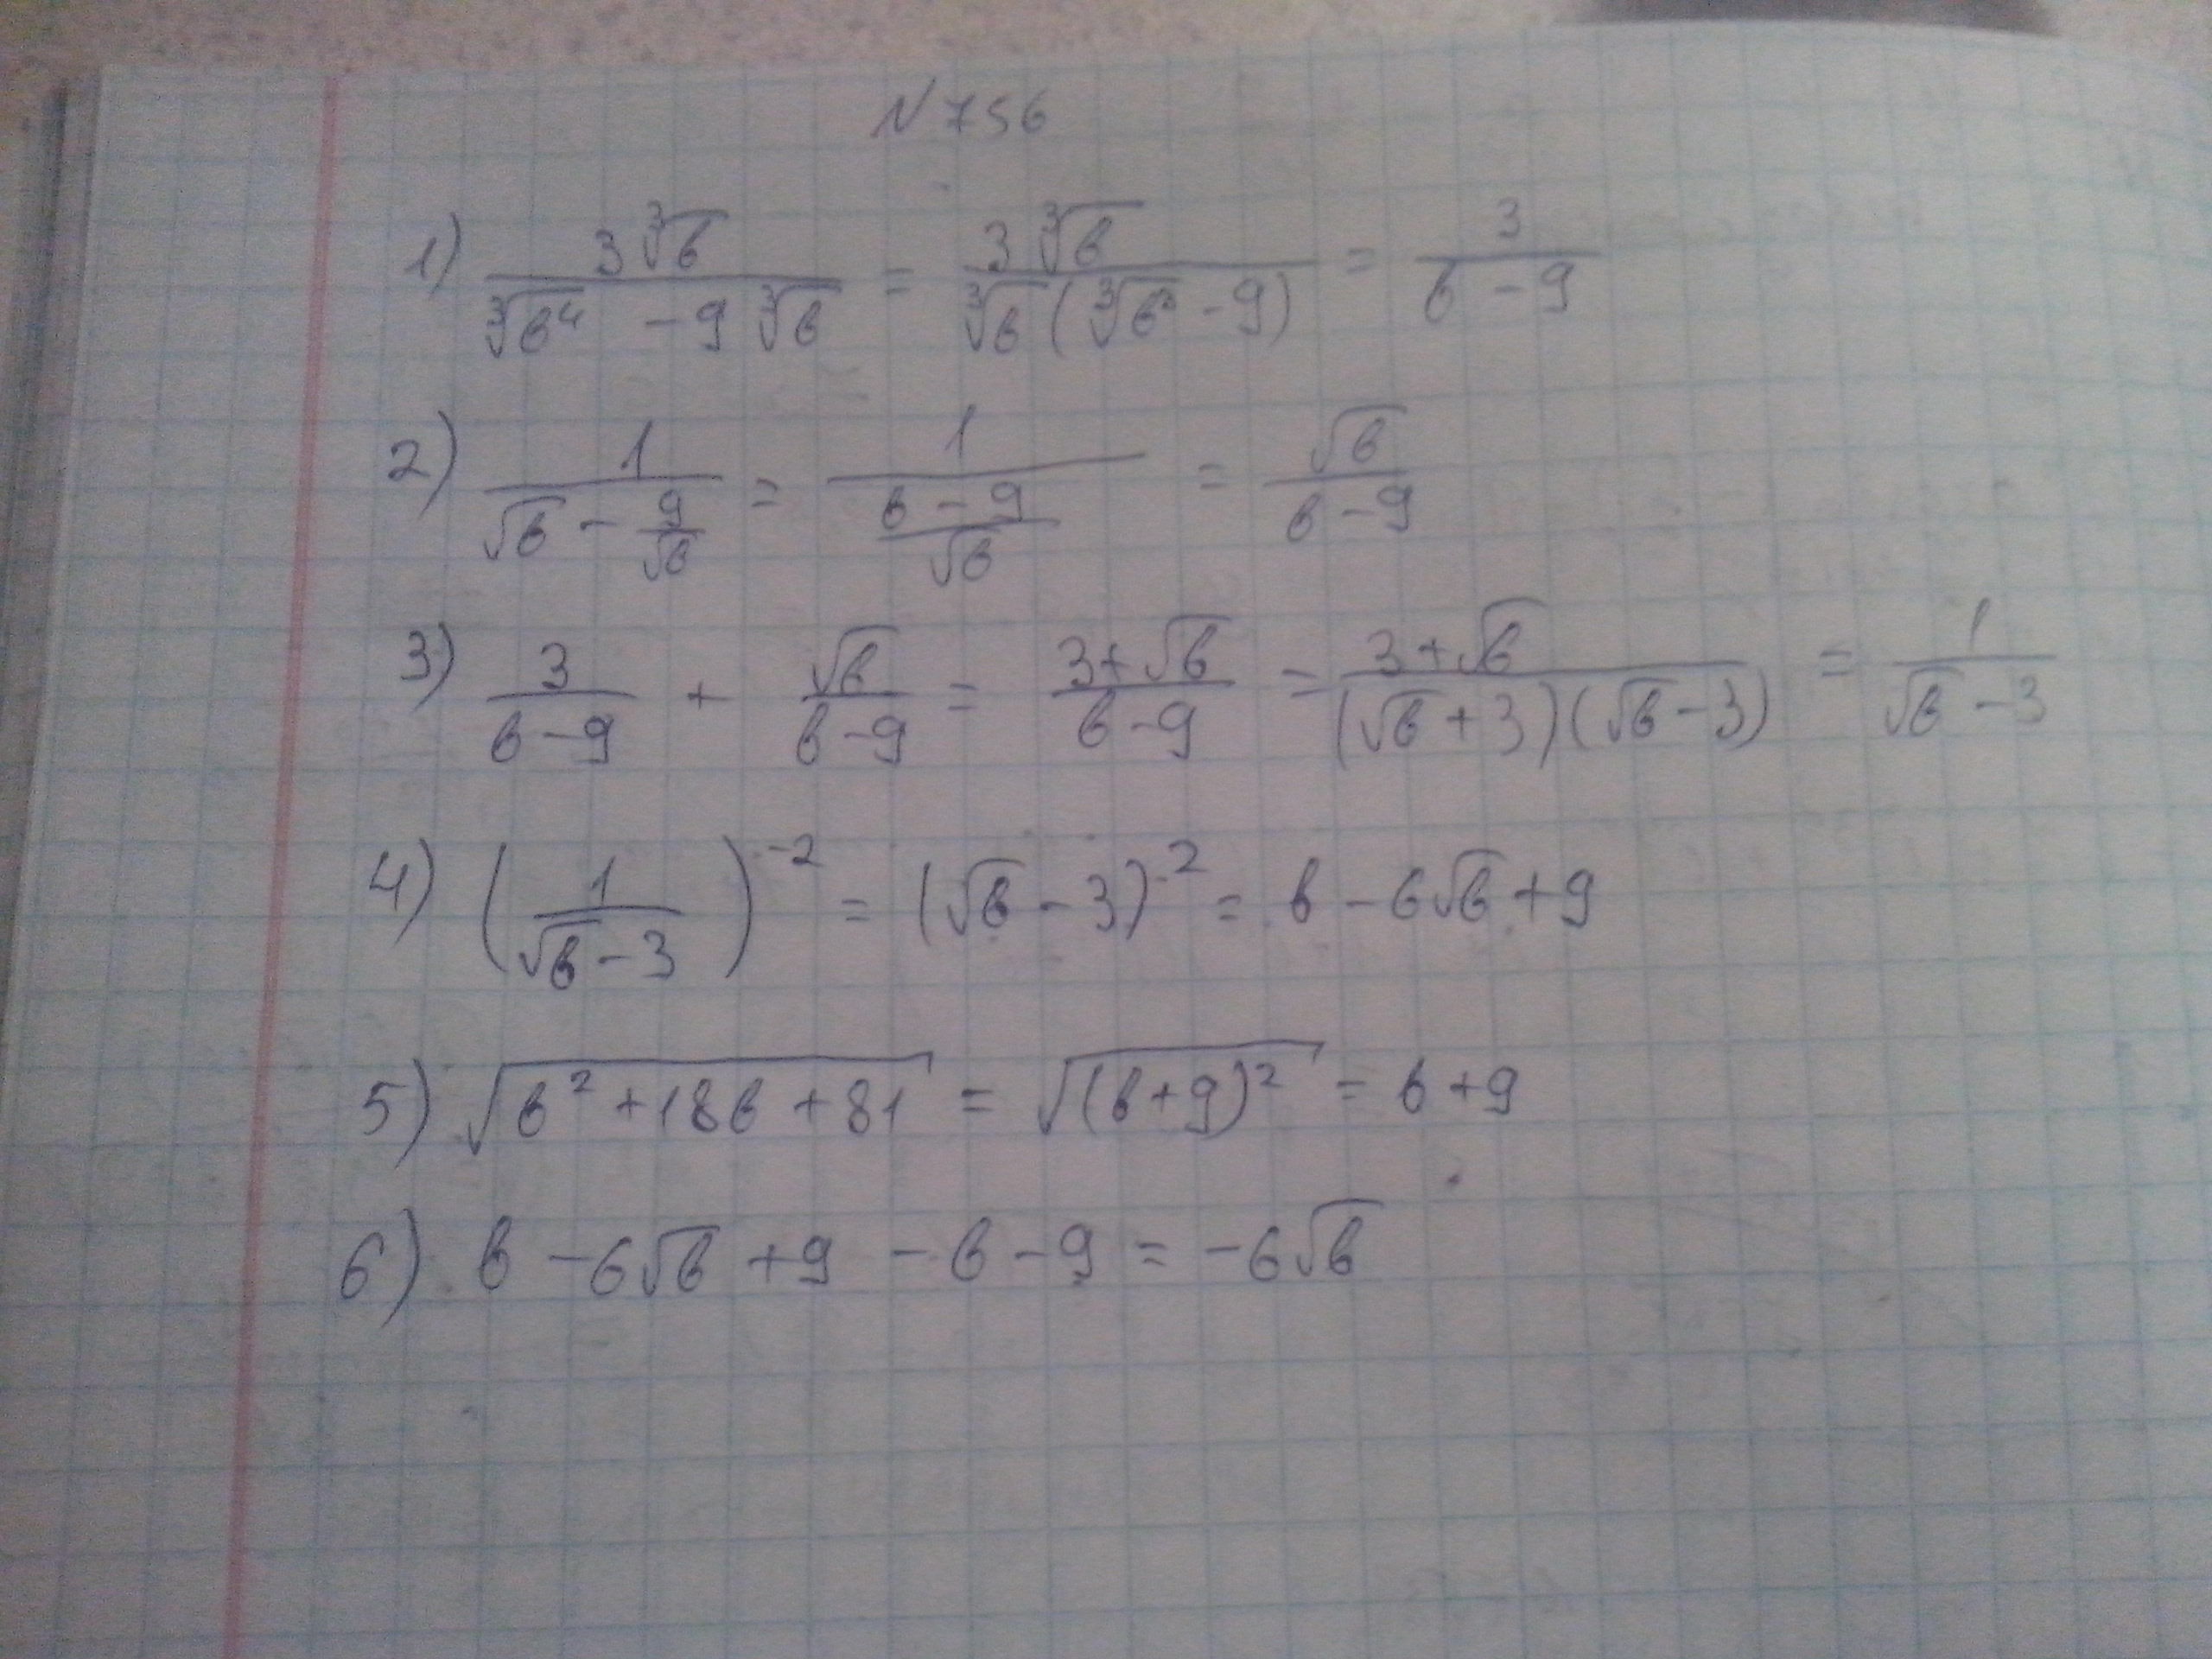 N 756
1) \frac{3\sqrt[3]{b}}{\sqrt[3]{b^4} - 9\sqrt[3]{b}} = \frac{3\sqrt[3]{b}}{\sqrt[3]{b}(\sqrt[3]{b^3} - 9)} = \frac{3}{b - 9}
2) \frac{1}{\sqrt{b} - \frac{9}{\sqrt{b}}} = \frac{1}{\frac{b - 9}{\sqrt{b}}} = \frac{\sqrt{b}}{b - 9}
3) \frac{3}{b - 9} + \frac{\sqrt{b}}{b - 9} = \frac{3 + \sqrt{b}}{b - 9} = \frac{3 + \sqrt{b}}{(\sqrt{b} + 3)(\sqrt{b} - 3)} = \frac{1}{\sqrt{b} - 3}
4) \left(\frac{1}{\sqrt{b} - 3}\right)^{-2} = (\sqrt{b} - 3)^{2} = b - 6\sqrt{b} + 9
5) \sqrt{b^2 + 18b + 81} = \sqrt{(b + 9)^2} = b + 9
6) b - 6\sqrt{b} + 9 - b - 9 = -6\sqrt{b}